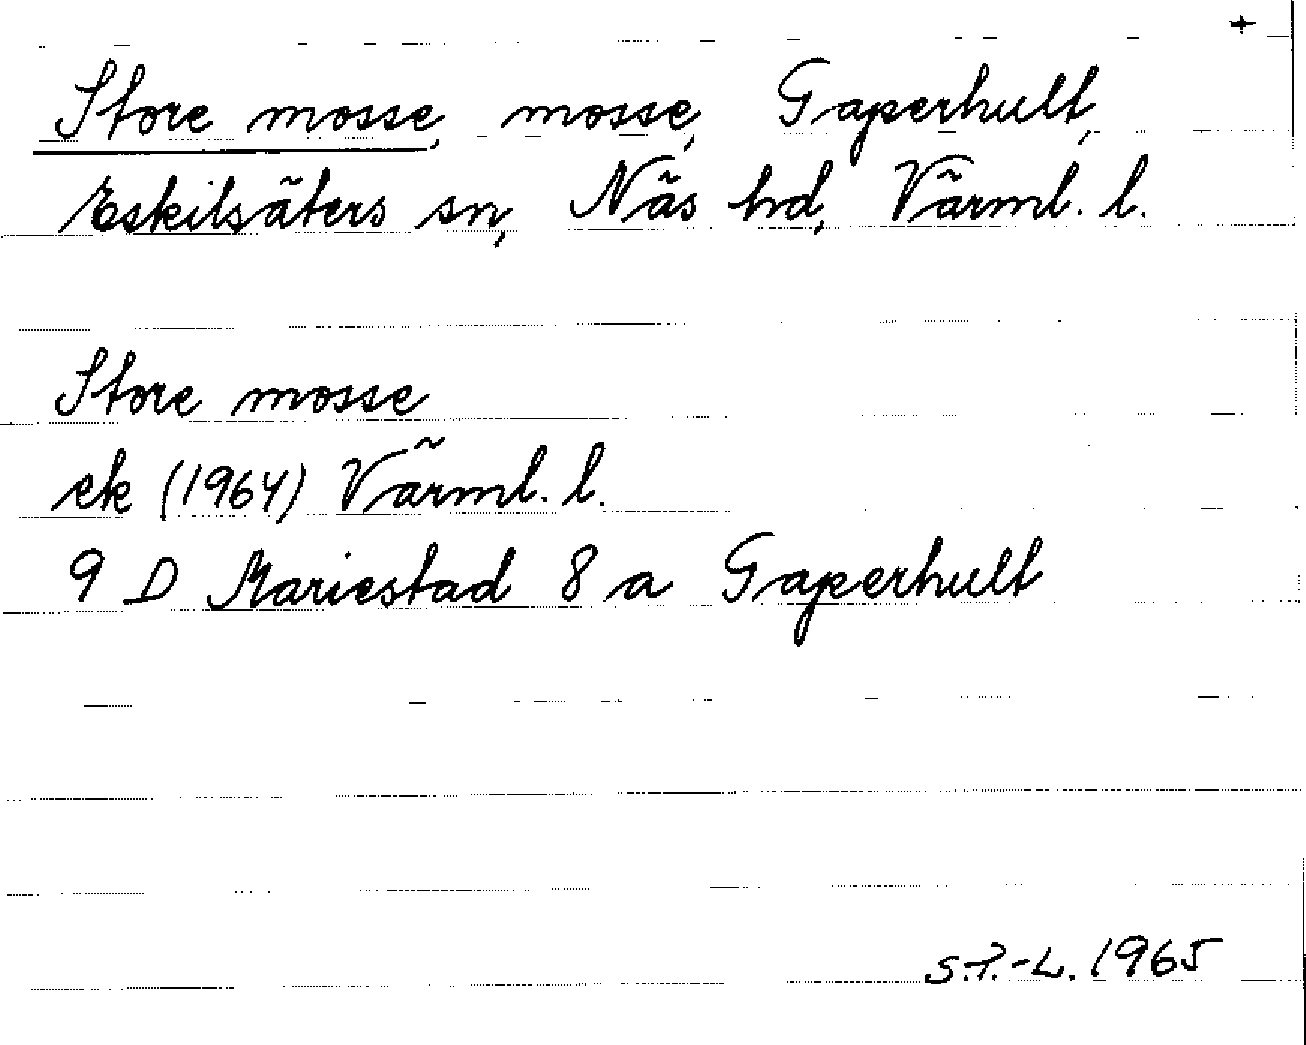 +
Store mosse, mosse, Gaperhult,
Eskilsäters sn, Näs hd, Värml. l.
Store mosse
ek (1964) Värml. l.
9 D Mariestad 8 a Gaperhult
S.P.-L. 1965